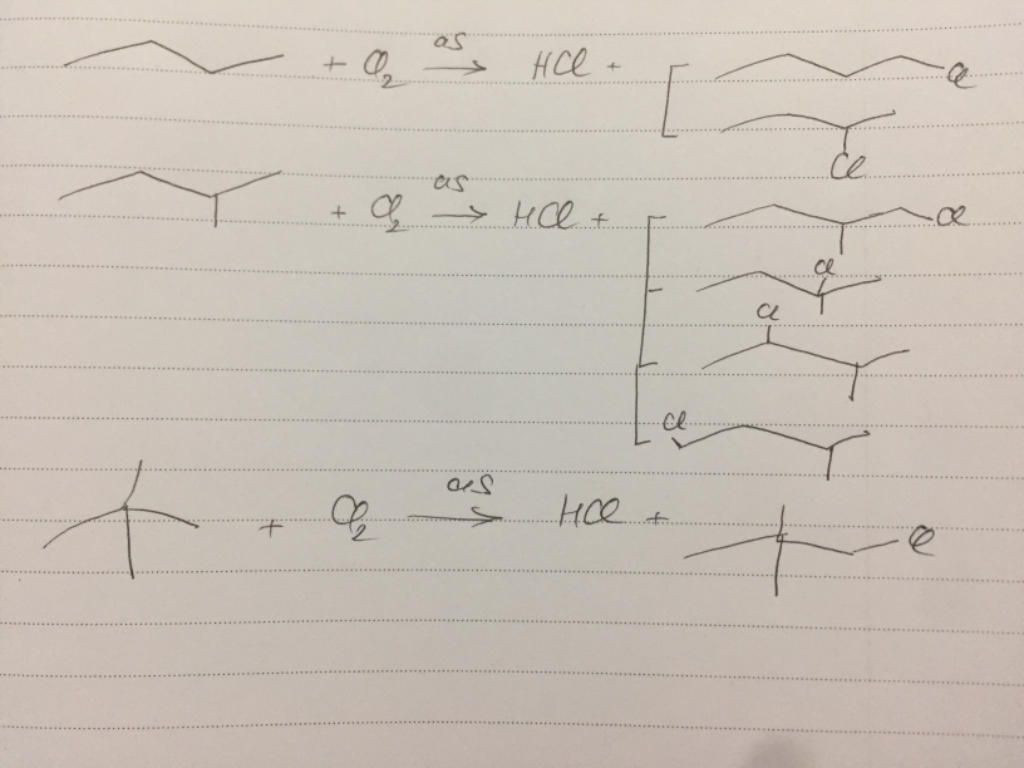 + Cl2 as → HCl + Cl
Cl
+ Cl2 as → HCl + Cl
Cl
Cl
Cl
+ Cl2 as → HCl + Cl